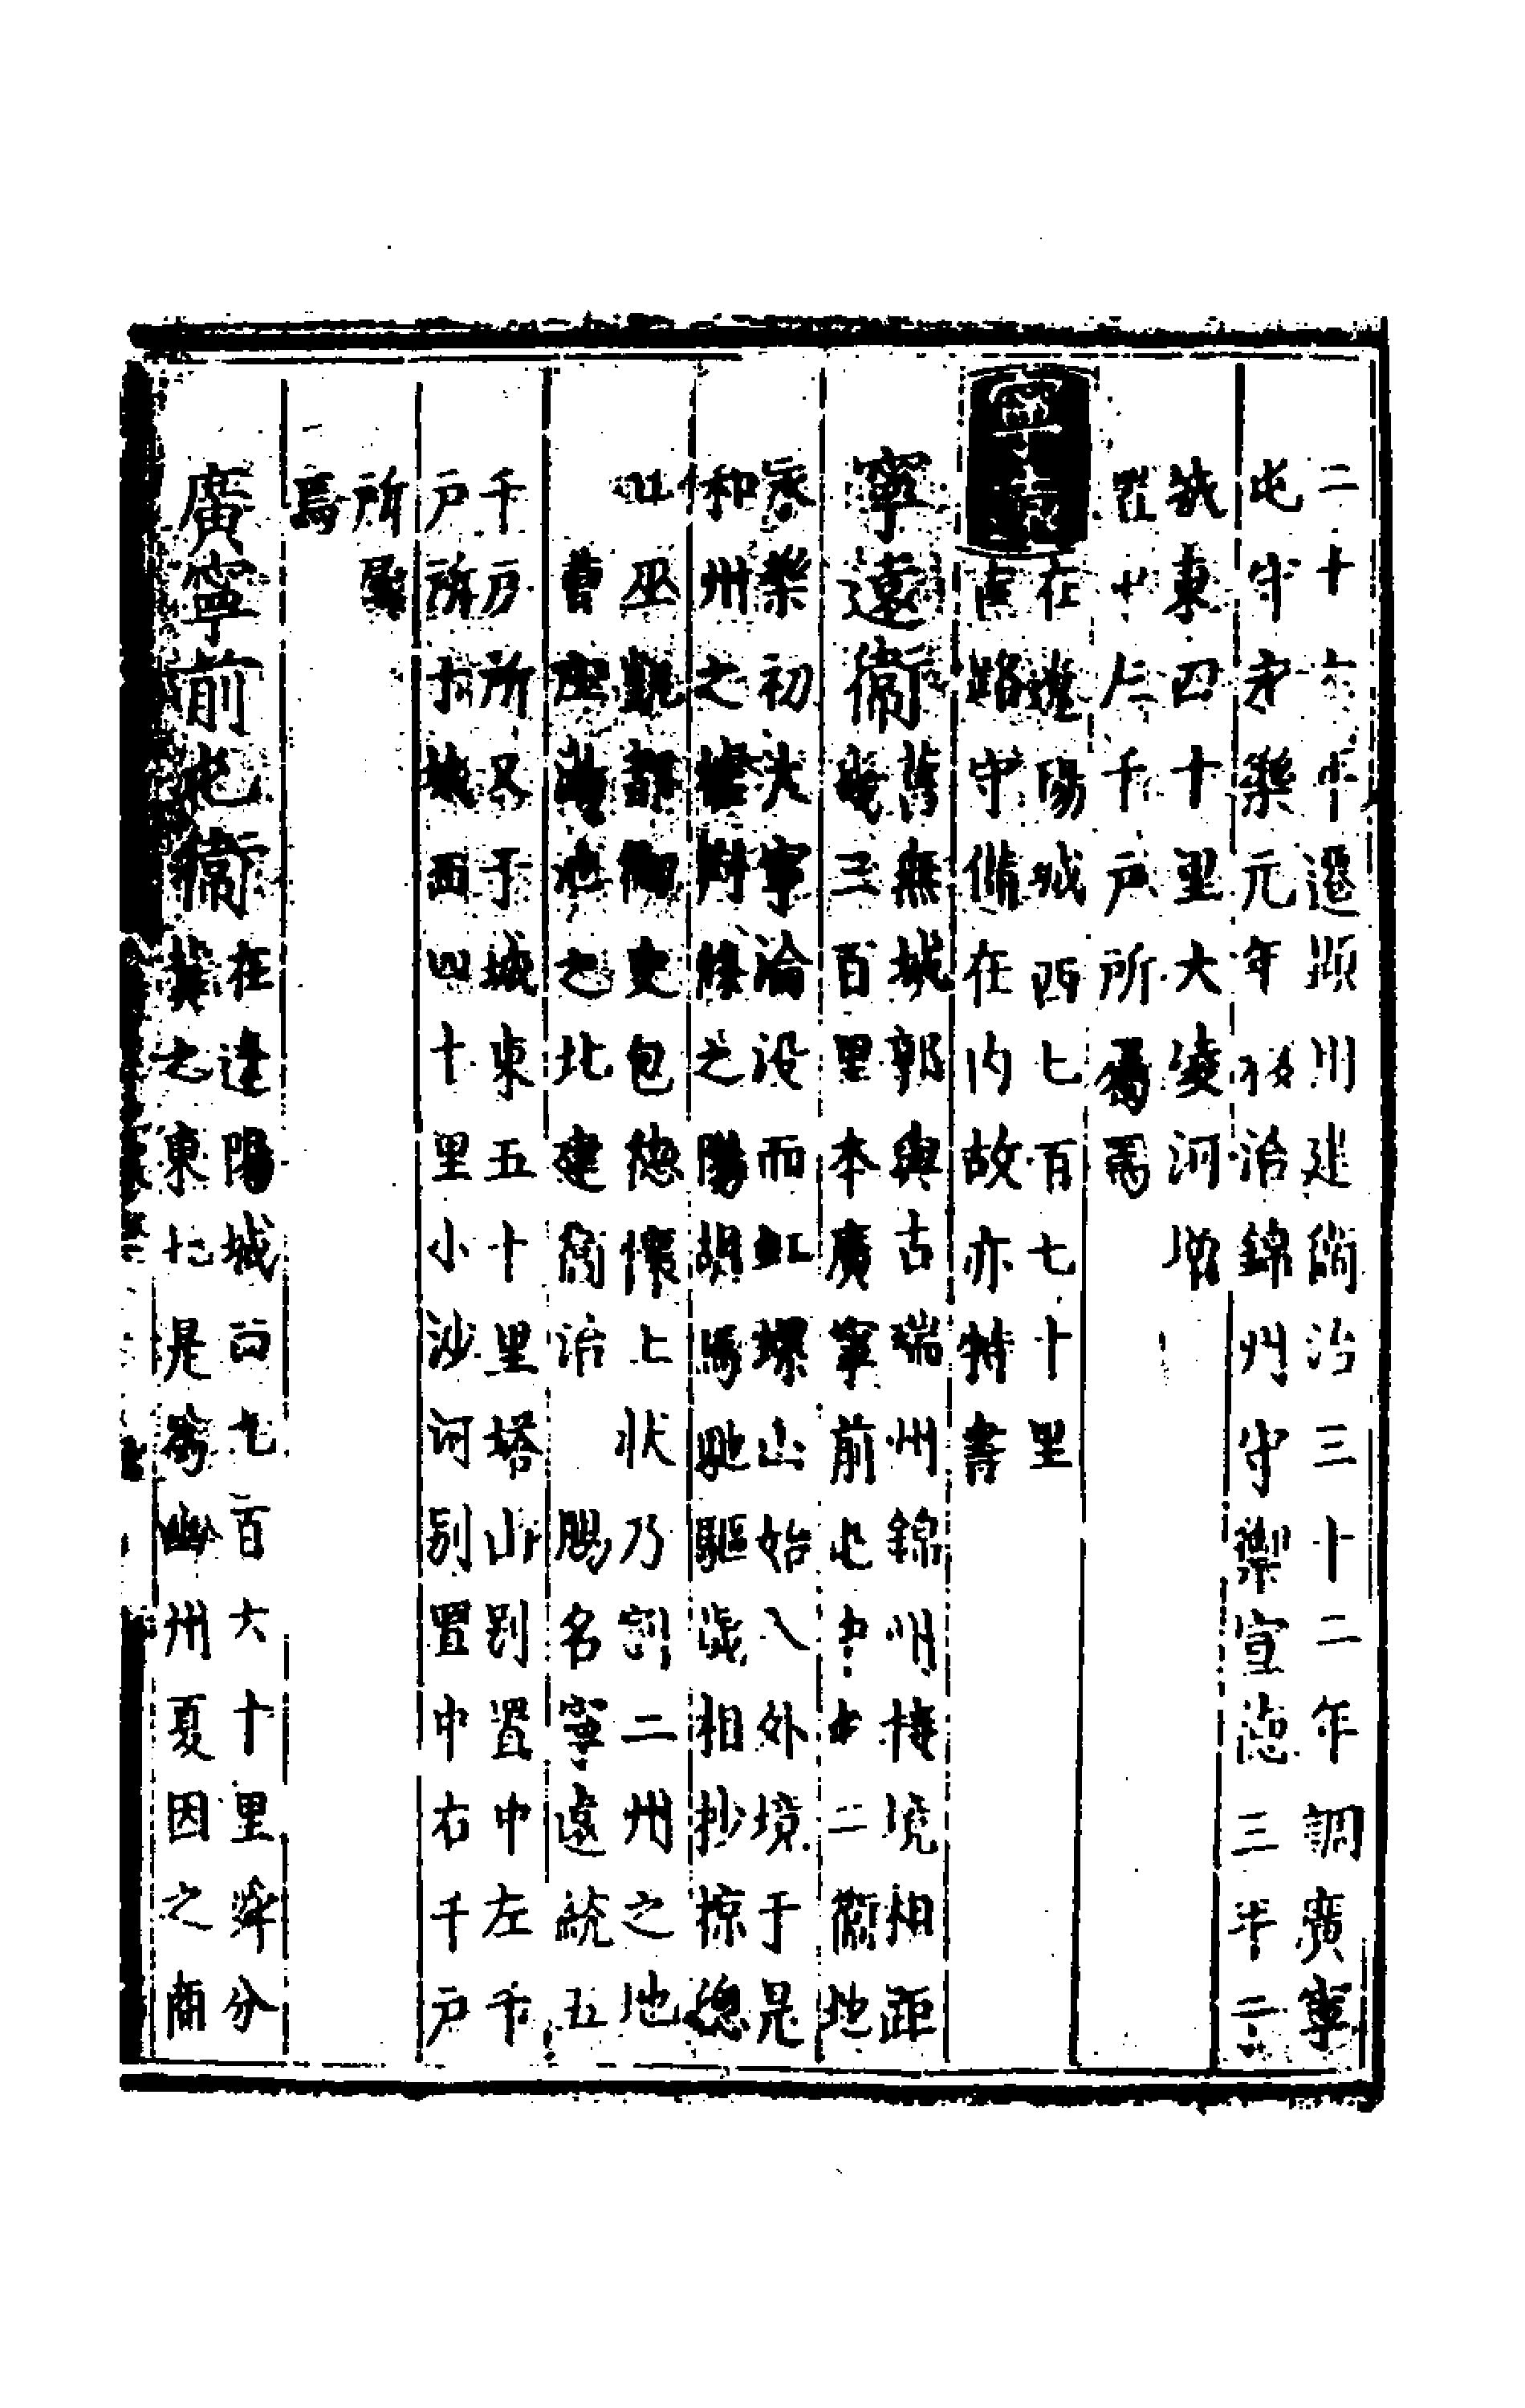 二十六年遷頭州建衛治三十二年調廣寧
屯守永樂元年複治錦州守禦宣德三年二
城東四十里大凌河增
置中左千戶所屬焉
寧
在遼陽城西七百七十里
路守備在內故亦特書
寧遠衛
舊無城郭與古瑞州錦州接境相距
三百里本廣寧前屯中屯二衛地
永樂初大寧淪沒而虹螺山始入外境于是
和州之塘附條之陽胡馬馳驅歲相抄掠總
巫凱都御史包德懷上狀乃割二州之地
曹莊湯池之北建衛治 賜名寧遠統五
千戶所又于城東五十里塔山別置中左千
戶所城西四十里小沙河別置中右千戶
所屬
焉
廣寧前屯衛
在遼陽城西九百六十里舜分
冀之東北是為幽州夏因之商